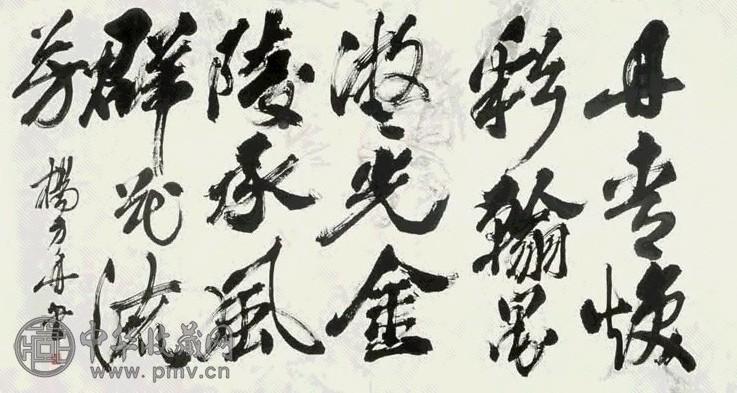 丹青焕
彩翰墨
光金
陵承風
群花流
芳
楊力舟書
中华收藏网
www.pmv.cn